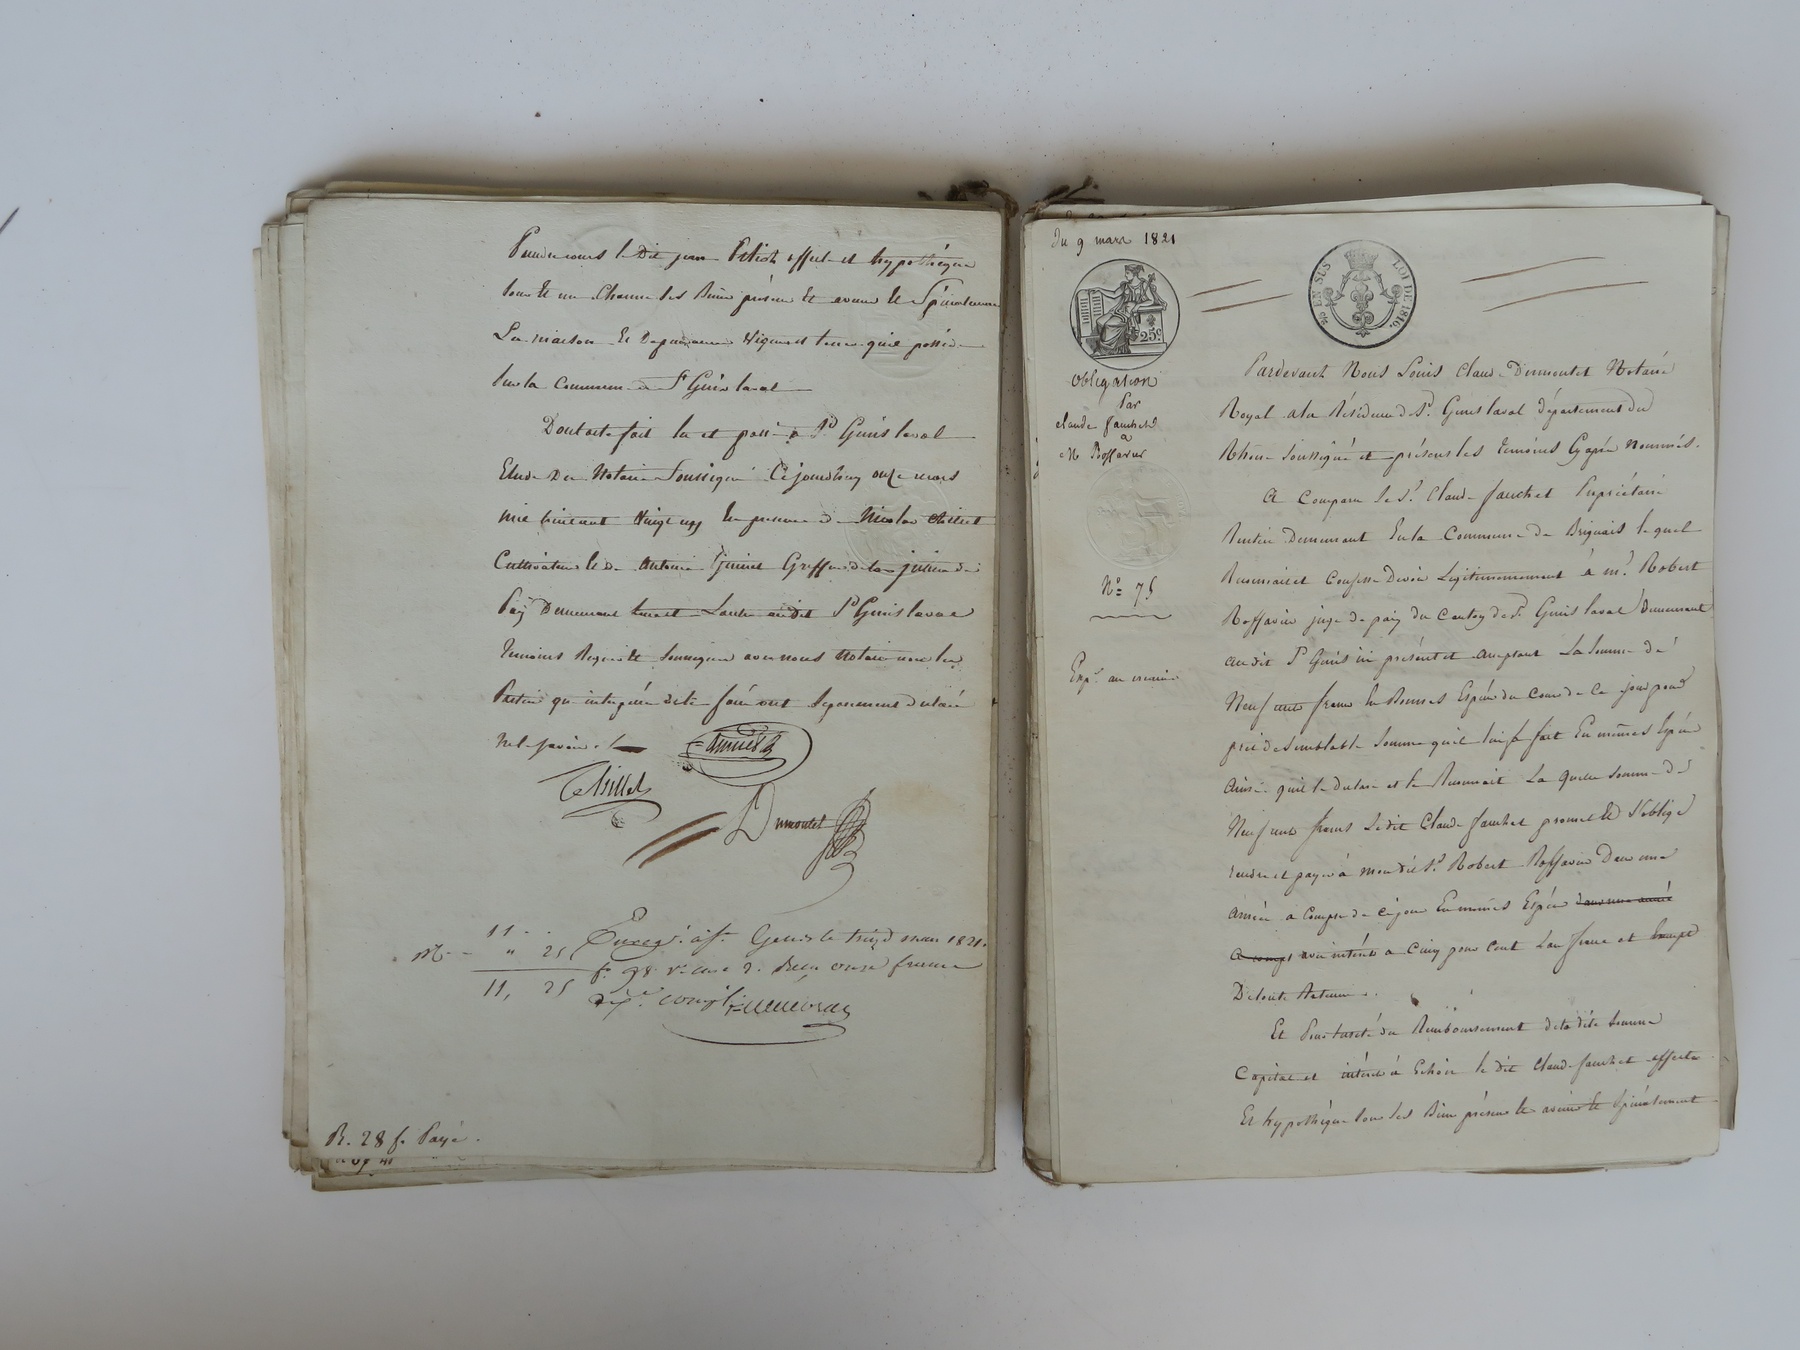 le Dit jean effecte et hypothèque
tous ses Biens présens et avenir et Spécialement
La maison et vignes et terre qu'il possède
Sur la Commune de St Genis laval
Dont acte fait lu et passé à St Genis laval
Etude du Notaire Soussigné Ce jourd'huy onze mars
mil huit cent vingt un En presence de Nicolas
Cultivateur et de Antoine Greffier de la justice de
Paix Demeurant audit St Genis laval
temoins Requis et Soussignés avec nous Notaire non les
Parties qui interpellées de le faire ont Separement declaré
ne le Savoir
Dumontet
Enreg. à St Genis le treize mars 1821.
f. 98 Vo case 2. Reçu onze francs
11 "
" 25
11, 25
R. 28 f. Payé.
Du 9 mars 1821
25c.
EN SUS LOI DE 1816.
Obligation
Par
Claude fauchet
a
M Boffavier
No 75
Exp. au
Pardevant Nous Louis Claude Dumontet Notaire
Royal a la Résidence de St. Genis laval département du
Rhône Soussigné et présens les temoins Cy après nommés.
A Comparu le Sr. Claude fauchet Propriétaire
Rentier Demeurant En la Commune de Brignais lequel
Reconnait et Confesse Devoir Legitimemement à mr. Robert
Boffavier juge de paix du Canton de St. Genis laval Demeurant
audit St Genis ici présent et acceptant La Somme de
Neuf cents francs En Bonnes Espèces du Cours de Ce jour pour
prêt de Semblable Somme qu'il lui a fait En mêmes Espèces
Ainsi qu'il le declare et le Reconnait La quelle Somme de
Neuf cents francs Ledit Claude fauchet promet et S'oblige
rendre et payer à mondit Sr. Robert Boffavier Dans une
Année a Compter de Ce jour En mêmes Espèces dans une année
a compter avec intérêts a Cinq pour Cent L'an franc et Exempt
De toute Retenue.
Et Pour Sureté du Remboursement de la dite Somme
Capital et intérêts à Echoir le dit Claude fauchet affecte
Et hypothèque tous Ses Biens présens et avenir et Spécialement